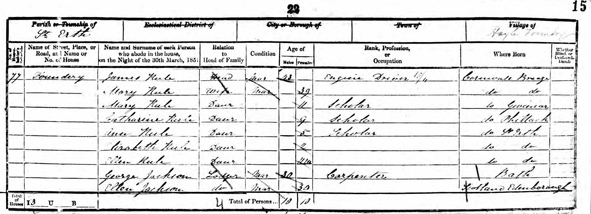 23
15
Parish or Township of
Ecclesiastical District of
City or Borough of
Town of
Village of
St Erth
Name of Street, Place, or Road, and Name or No. of House
Name and Surname of each Person who abode in the house, on the Night of the 30th March, 1851
Relation to Head of Family
Condition
Age of
Males
Females
Rank, Profession, or Occupation
Where Born
Whether Blind, or Deaf-and-Dumb
77 Foundery James Rule Head Mar 43 Engine Driver Cornwall Breage
Mary Rule Wife Mar 39 do do
Mary Rule Daur 11 Scholar do Gwinear
Catharine Rule Daur 9 Scholar do Phillack
Rule Daur 5 Scholar do St Erth
Elizabeth Rule Daur 2 do do
Ellen Rule Daur do do
George Jackson Lodger Mar 30 Carpenter Bath
Jackson do Mar 30 Scotland Edenborough
Total of Houses
I U B
Total of Persons